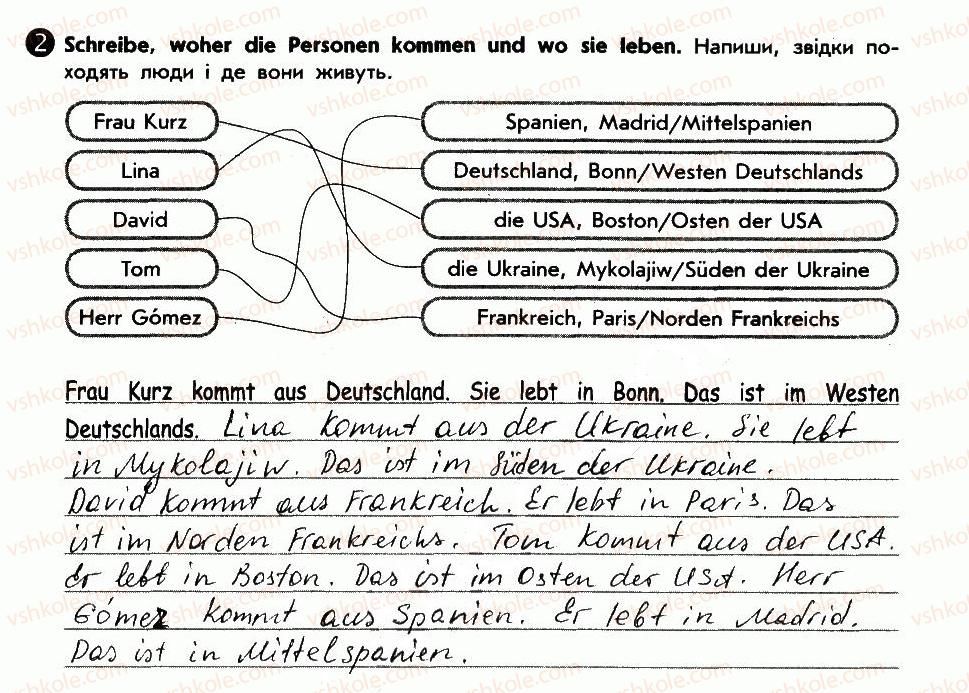 2 Schreibe, woher die Personen kommen und wo sie leben. Напиши, звідки по-
ходять люди і де вони живуть.
Frau Kurz
Spanien, Madrid/Mittelspanien
Lina
Deutschland, Bonn/Westen Deutschlands
David
die USA, Boston/Osten der USA
Tom
die Ukraine, Mykolajiw/Süden der Ukraine
Herr Gómez
Frankreich, Paris/Norden Frankreichs
Frau Kurz kommt aus Deutschland. Sie lebt in Bonn. Das ist im Westen
Deutschlands. Lina kommt aus der Ukraine. Sie lebt
in Mykolajiw. Das ist im Süden der Ukraine.
David kommt aus Frankreich. Er lebt in Paris. Das
ist im Norden Frankreichs. Tom kommt aus der USA.
Er lebt in Boston. Das ist im Osten der USA. Herr
Gómez kommt aus Spanien. Er lebt in Madrid.
Das ist in Mittelspanien.
vshkole.com